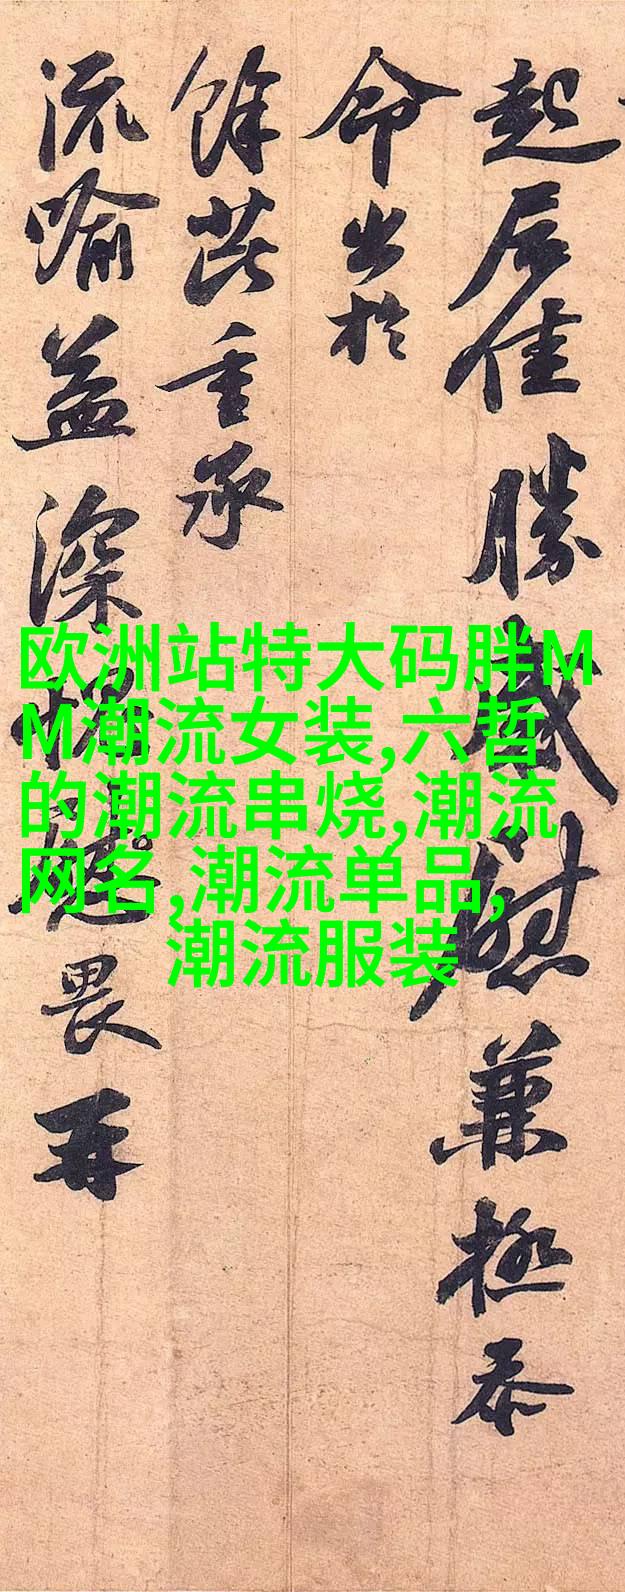 起居佳勝感慰兼極忝
命出於
餘芘重承
流喻益深愧畏再
欧洲站特大码胖M
M潮流女装,六哲
的潮流串烧,潮流
网名,潮流单品,
潮流服装